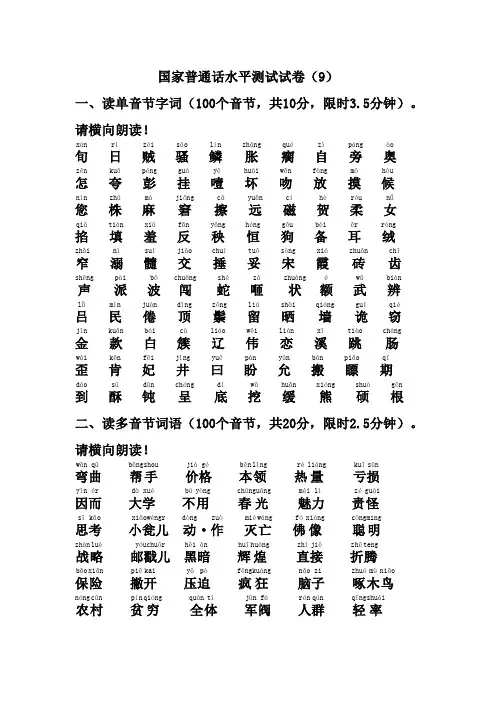 国家普通话水平测试试卷（9）
一、读单音节字词（100个音节，共10分，限时3.5分钟）。
请横向朗读！
xún rì zéi sāo lín zhàng qué zì páng ào
旬 日 贼 骚 鳞 胀 瘸 自 旁 奥
zěn kuā péng guà yē huài wěn fàng mō hòu
怎 夸 彭 挂 噎 坏 吻 放 摸 候
nín zhū má jiǒng cā yuǎn cí hè róu nǚ
您 株 麻 窘 擦 远 磁 贺 柔 女
qiā tián xiū fǎn yāng héng gǒu bèi ěr róng
掐 填 羞 反 秧 恒 狗 备 耳 绒
zhǎi nì suǐ jiāo chuí tuǒ sòng xiá zhuān chǐ
窄 溺 髓 交 捶 妥 宋 霞 砖 齿
shēng pài bō chuǎng shé zá zhuàng é wǔ biàn
声 派 波 闯 蛇 砸 状 额 武 辨
lǚ mín juàn dǐng zōng liú shài qiáng guǐ qiè
吕 民 倦 顶 鬃 留 晒 墙 诡 窃
jīn kuǎn bái cù liáo wěi liàn xī tiào cháng
金 款 白 簇 辽 伟 恋 溪 跳 肠
wāi kěn fēi jǐng yuē pàn yǔn bān piáo qī
歪 肯 妃 井 曰 盼 允 搬 瞟 期
dào sū dùn chéng dǐ wā huǎn xióng shuò gēn
到 酥 钝 呈 底 挖 缓 熊 硕 根
二、读多音节词语（100个音节，共20分，限时2.5分钟）。
请横向朗读！
wān qū bāngshou jià gé běn lǐng rè liàng kuī sǔn
弯曲 帮手 价格 本领 热量 亏损
yīn ér dà xué bú yòng chūnguāng mèi lì zé guài
因而 大学 不用 春光 魅力 责怪
sī kǎo xiǎowèngr dòng zuò mièwáng fó xiàng cōngmíng
思考 小瓮儿 动·作 灭亡 佛像 聪明
zhàn lüè yóuchuōr hēi àn huīhuáng zhí jiē zhē teng
战略 邮戳儿 黑暗 辉煌 直接 折腾
bǎoxiǎn piē kāi yā pò fēngkuáng nǎo zi zhuó mù niǎo
保险 撇开 压迫 疯狂 脑子 啄木鸟
nóngcūn pín qióng quán tǐ jūn fá rén qún qīngshuài
农村 贫穷 全体 军阀 人群 轻率